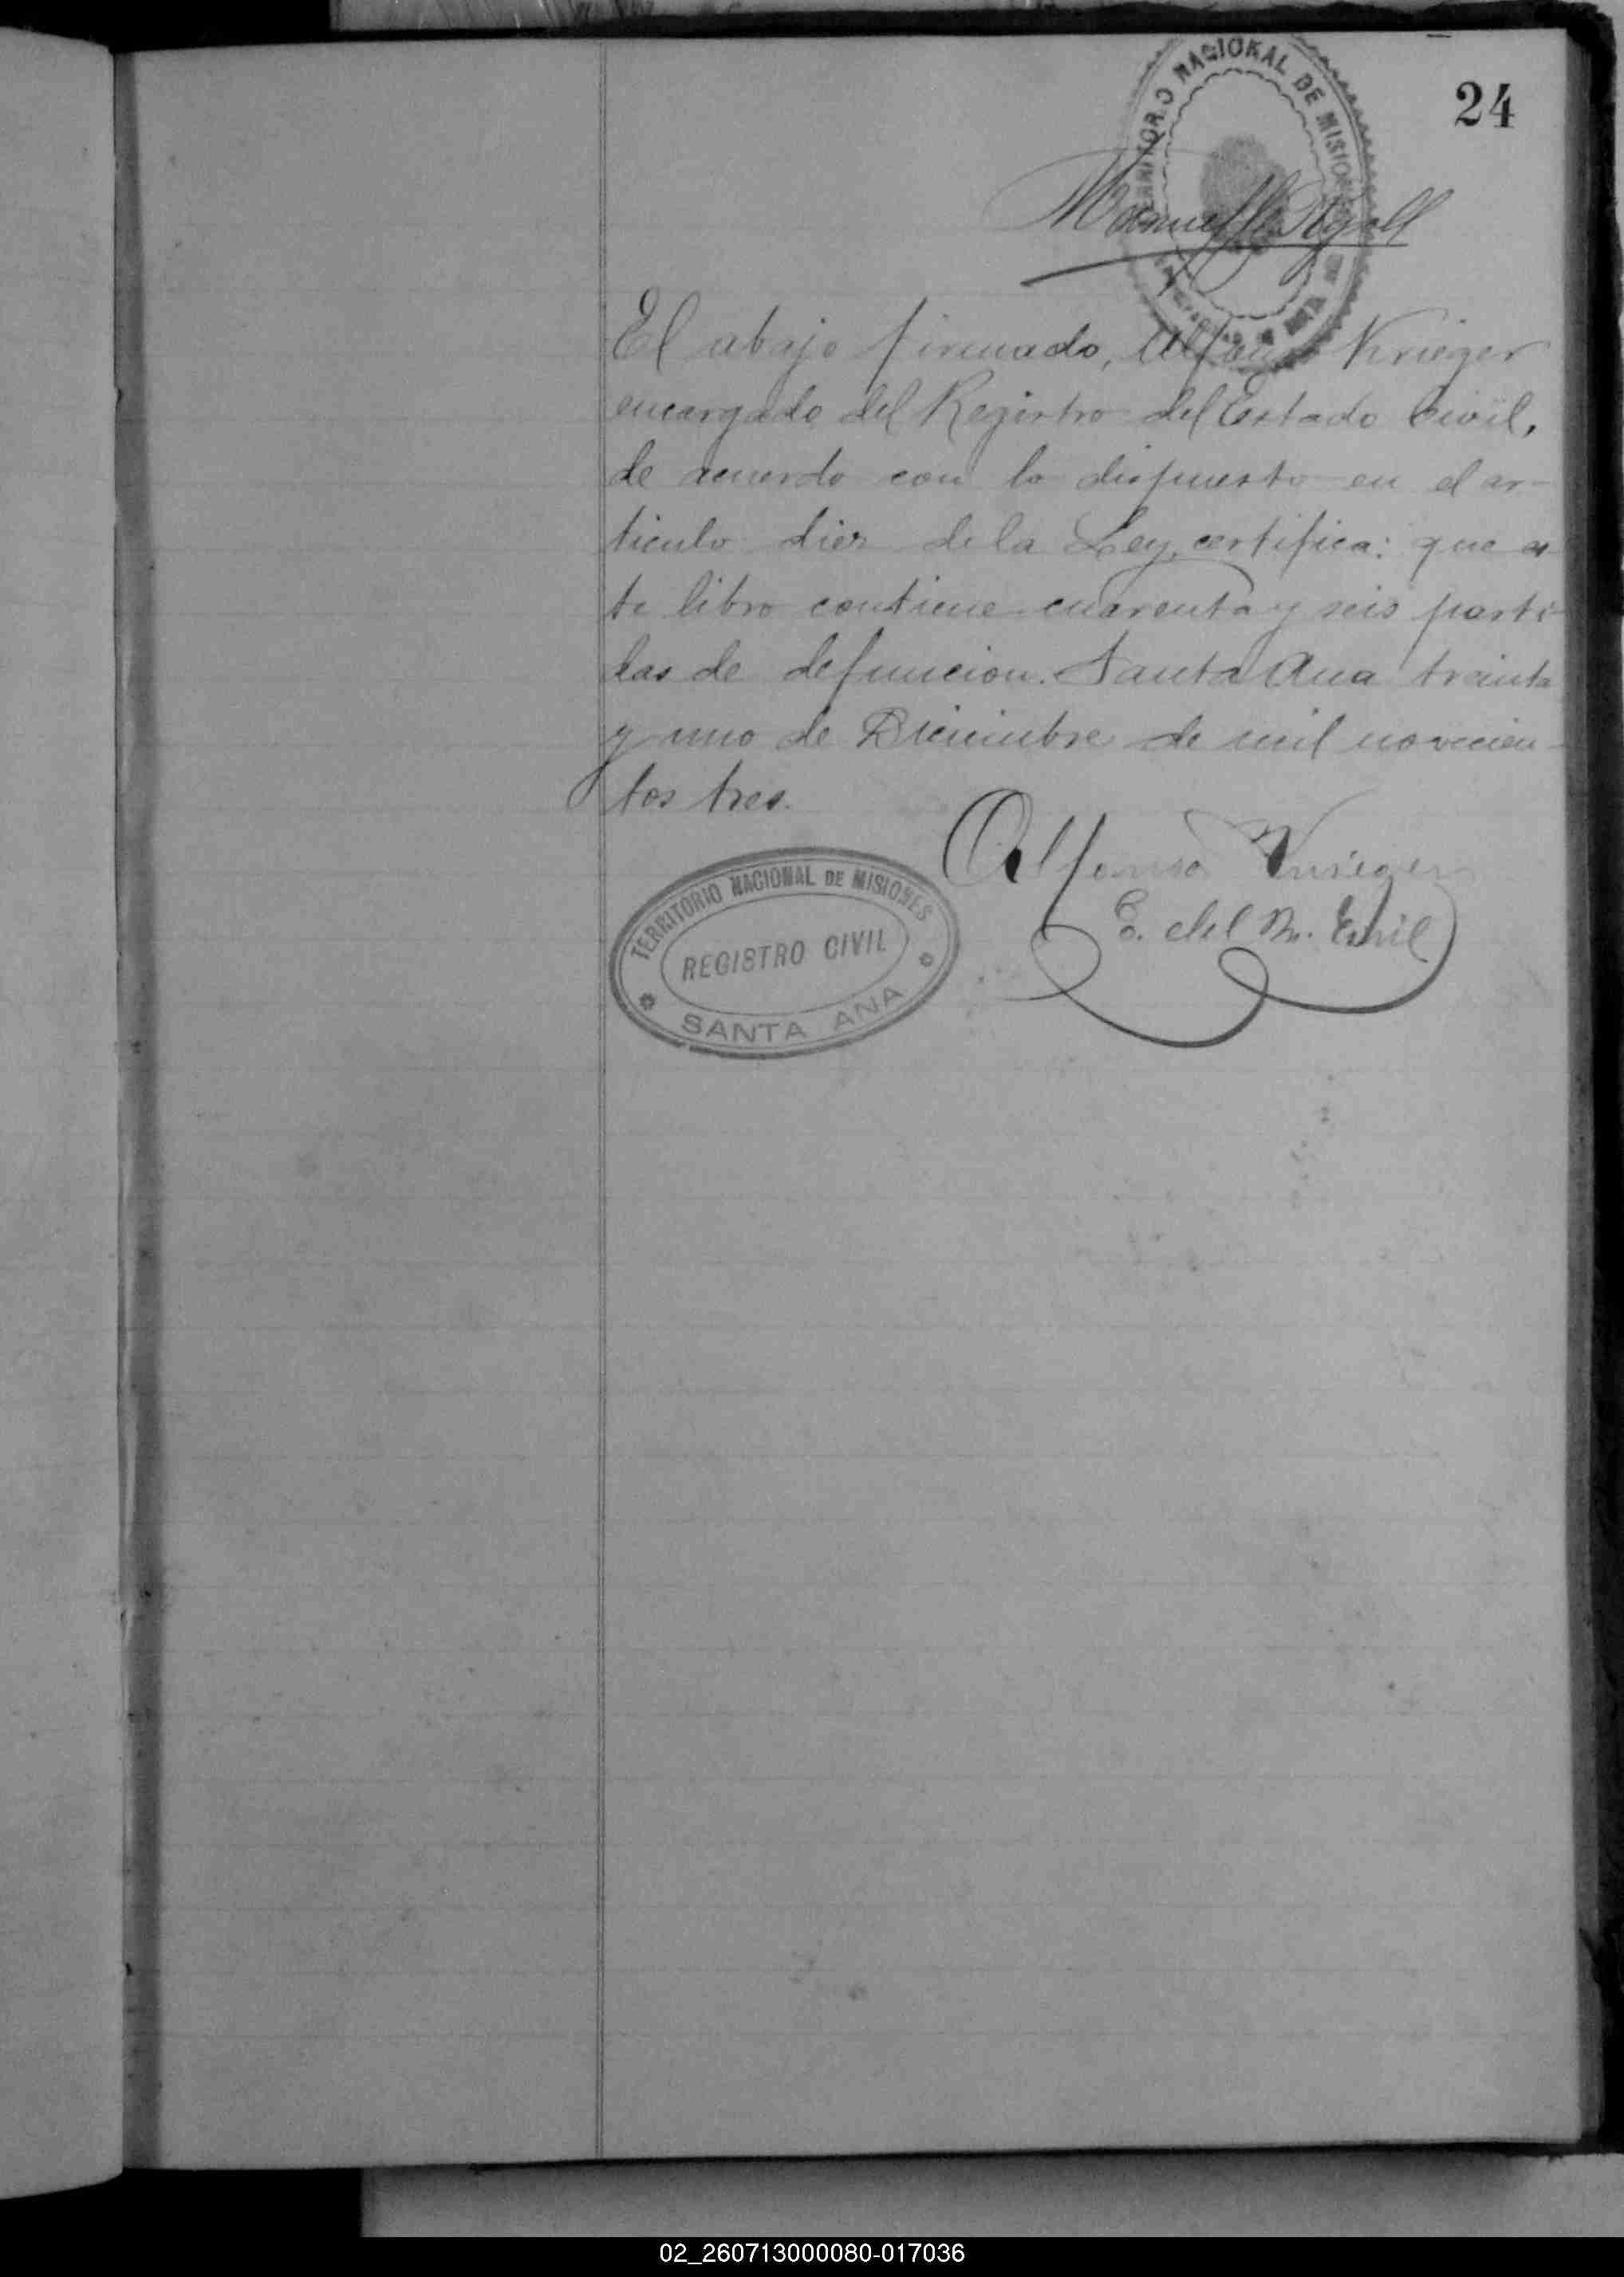 24
TERRITORIO NACIONAL DE MISIONES
Manuel
El abajo firmado, Alfonso Krieger
encargado del Registro del Estado Civil,
de acuerdo con lo dispuesto en el ar-
ticulo diez de la Ley, certifica: que es
te libro contiene cuarenta y seis parti-
das de defuncion. Santa Ana treinta
y uno de Diciembre de mil novecien-
tos tres.
Alfonso Krieger
E. del R. Civil
TERRITORIO NACIONAL DE MISIONES
REGISTRO CIVIL
SANTA ANA
02_260713000080-017036